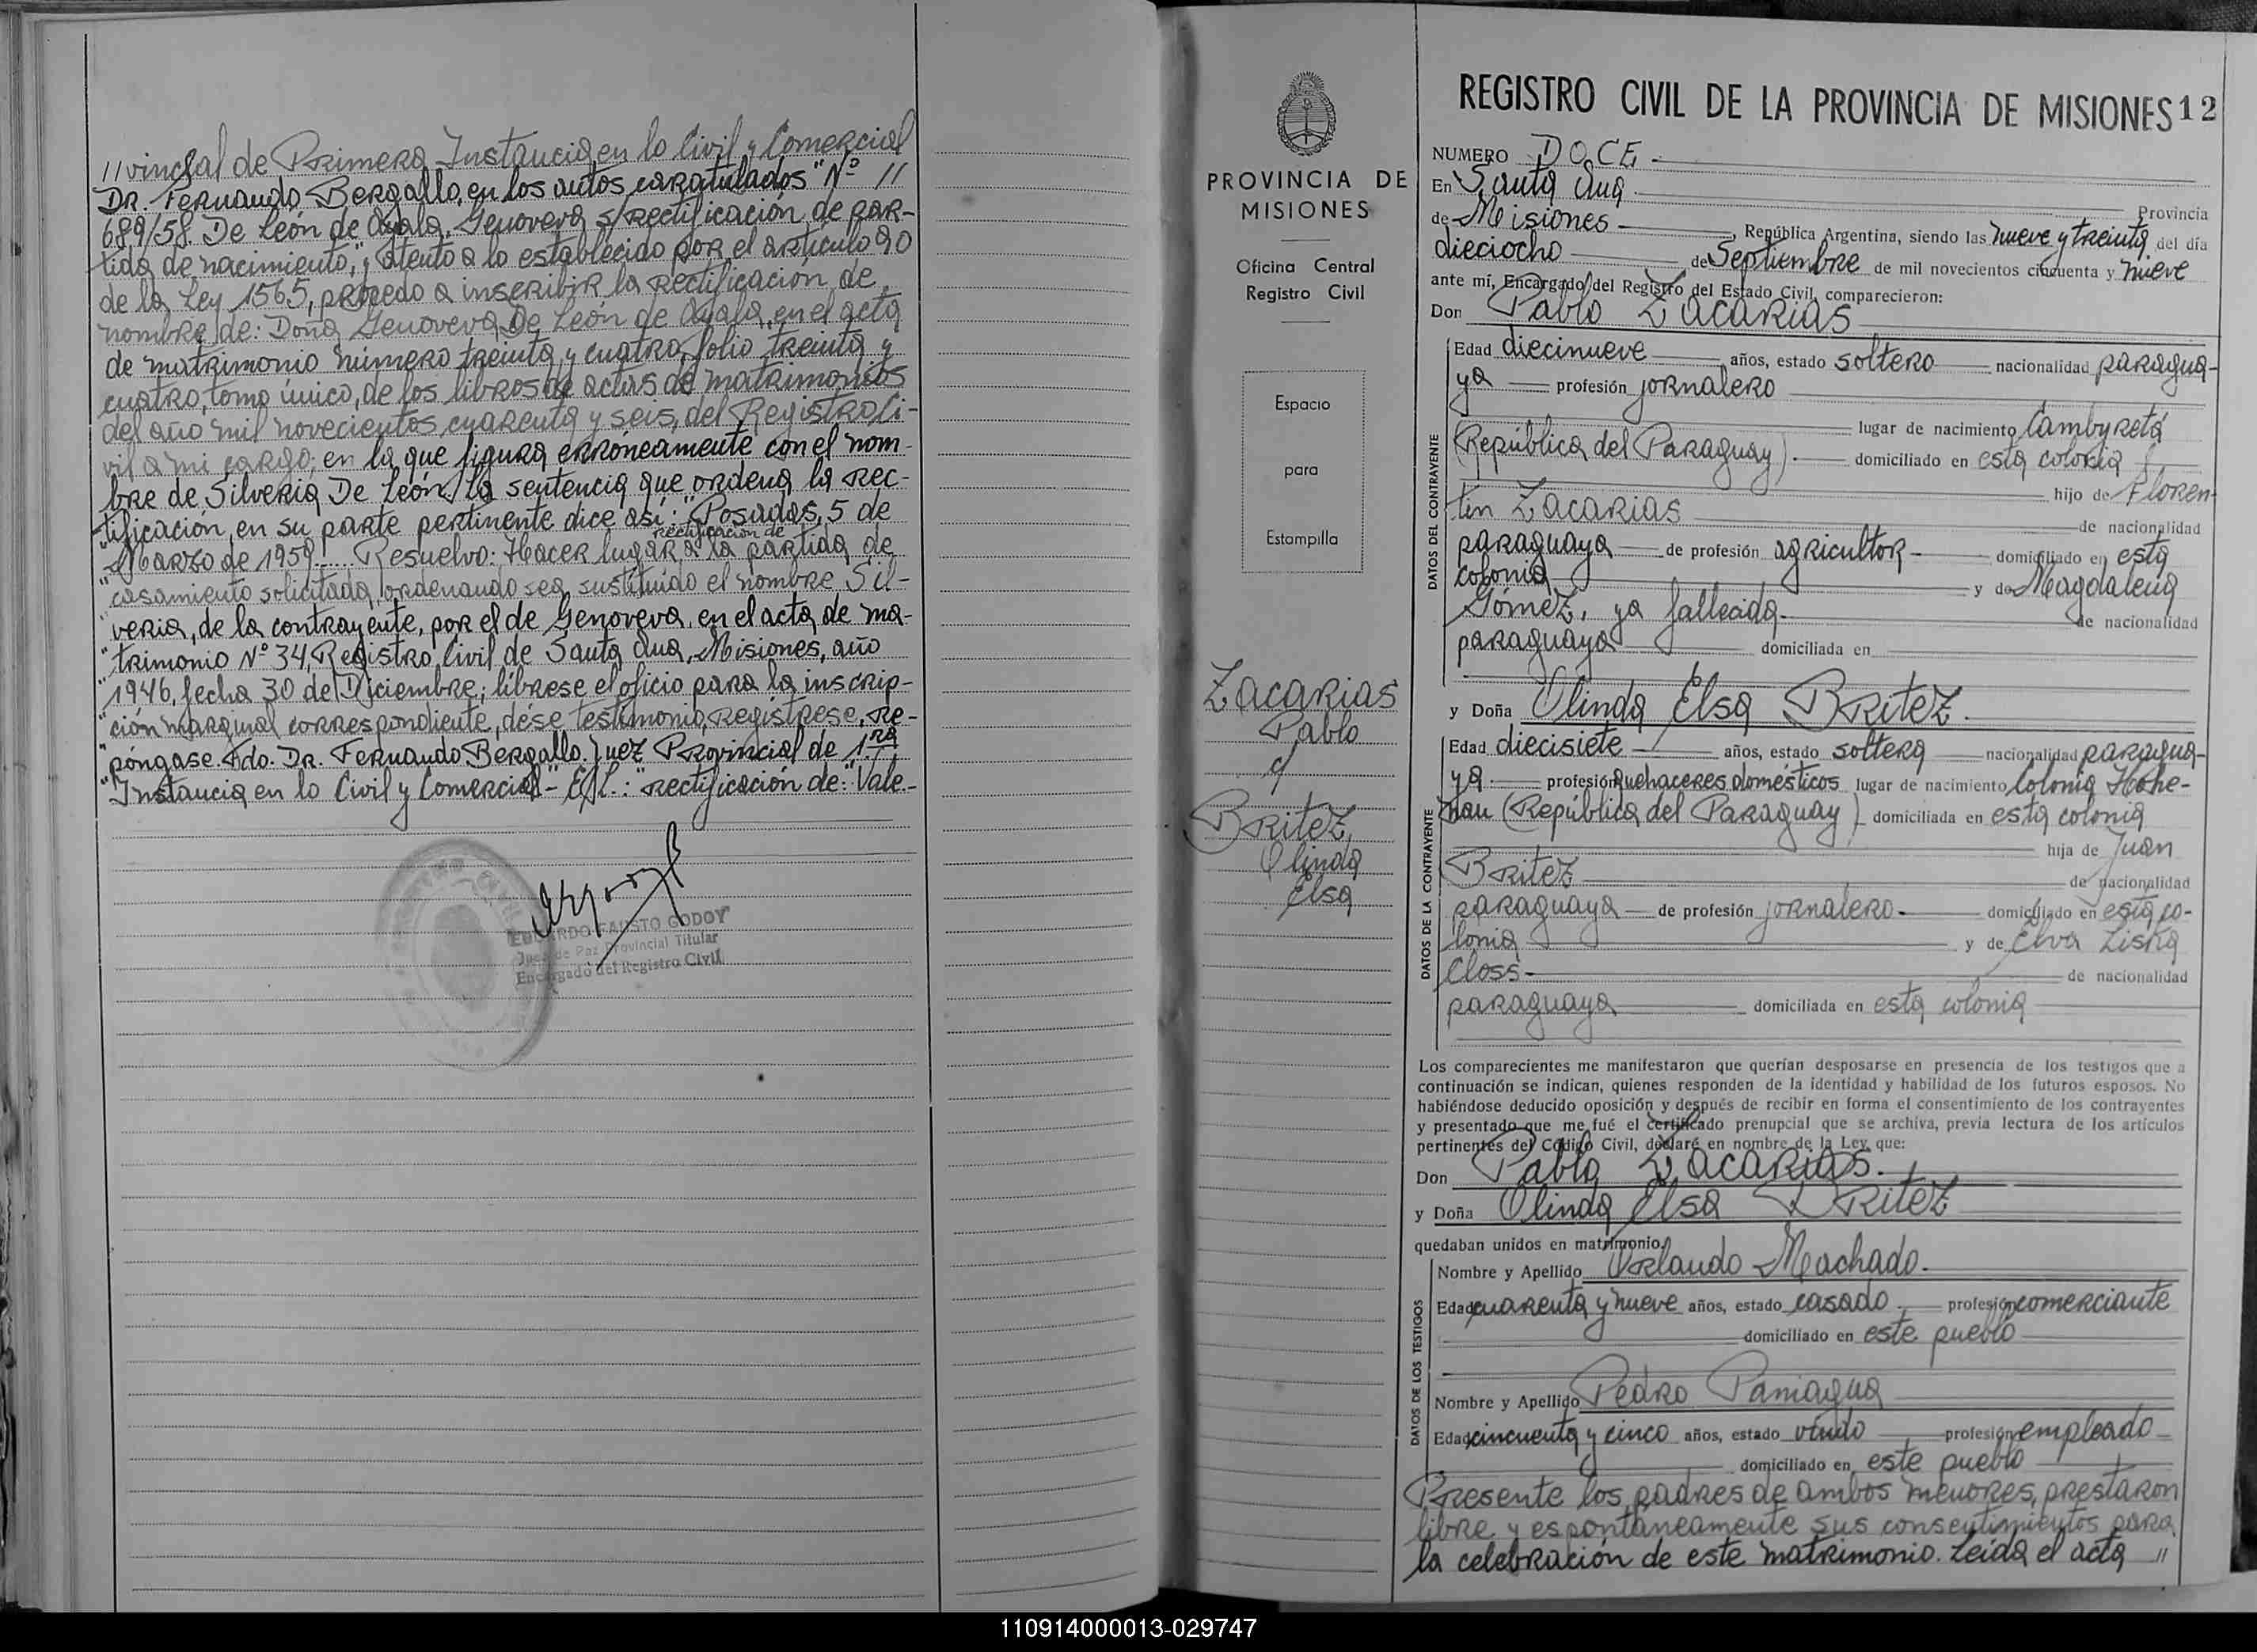 //vincial de Primera Instancia en lo Civil y Comercial
DR. Fernando Bergallo, en los autos caratulados "Nº //
689/58. De León de Ayala, Genoveva s/rectificación de par-
tida de nacimiento," y atento a lo establecido por el artículo 90
de la Ley 1565, procedo a inscribir la rectificación de
nombre de: Doña Genoveva De León de Ayala, en el acta
de matrimonio número treinta y cuatro, folio treinta y
cuatro, tomo único, de los libros de actas de matrimonios
del año mil novecientos cuarenta y seis, del Registro Ci-
vil a mi cargo; en la que figura erróneamente con el nom-
bre de Silveria De León, la sentencia que ordena la rec-
tificación, en su parte pertinente dice así: "Posadas, 5 de
rectificación de
"Marzo de 1959..... Resuelvo: Hacer lugar a la partida de
"casamiento solicitada, ordenando sea sustituido el nombre Sil-
"veria, de la contrayente, por el de Genoveva, en el acta de ma-
"trimonio Nº 34, Registro Civil de Santa Ana, Misiones, año
"1946, fecha 30 de Diciembre; líbrese el oficio para la inscrip-
"ción marginal correspondiente, dése testimonio, regístrese, re-
"póngase. Fdo. DR. Fernando Bergallo. Juez Provincial de 1.ra
"Instancia en lo Civil y Comercial"- E/L.: "rectificación de": Vale.-
EDUARDO FAUSTO GODOY
Juez de Paz Provincial Titular
Encargado del Registro Civil
PROVINCIA DE
MISIONES
Oficina Central
Registro Civil
Espacio
para
Estampilla
Zacarias
Pablo
c/
Britez
Olinda
Elsa
REGISTRO CIVIL DE LA PROVINCIA DE MISIONES 12
NUMERO DOCE.-
En Santa Ana Provincia
de Misiones, República Argentina, siendo las nueve y treinta del día
dieciocho de Septiembre de mil novecientos cincuenta y nueve
ante mí, Encargado del Registro del Estado Civil, comparecieron:
Don Pablo Zacarias
DATOS DEL CONTRAYENTE
Edad diecinueve años, estado soltero nacionalidad paragua-
ya profesión jornalero
lugar de nacimiento Cambyretá
(República del Paraguay).- domiciliado en esta colonia
hijo de Floren-
tin Zacarias de nacionalidad
paraguaya de profesión agricultor domiciliado en esta
colonia y de Magdalena
Gómez, ya fallecida.- de nacionalidad
paraguaya domiciliada en
y Doña Olinda Elsa Britez.
DATOS DE LA CONTRAYENTE
Edad diecisiete años, estado soltera nacionalidad paragua-
ya profesión quehaceres domésticos lugar de nacimiento Colonia Hohe-
nau (República del Paraguay) domiciliada en esta colonia
hija de Juan
Britez de nacionalidad
paraguaya de profesión jornalero.- domiciliado en esta co-
lonia y de Elva Liska
Closs- de nacionalidad
paraguaya domiciliada en esta colonia
Los comparecientes me manifestaron que querían desposarse en presencia de los testigos que a
continuación se indican, quienes responden de la identidad y habilidad de los futuros esposos. No
habiéndose deducido oposición y después de recibir en forma el consentimiento de los contrayentes
y presentado que me fué el certificado prenupcial que se archiva, previa lectura de los artículos
pertinentes del Código Civil, declaré en nombre de la Ley que:
Don Pablo Zacarias.
y Doña Olinda Elsa Britez
quedaban unidos en matrimonio.
DATOS DE LOS TESTIGOS
Nombre y Apellido Orlando Machado.-
Edad cuarenta y nueve años, estado casado profesión comerciante
domiciliado en este pueblo
Nombre y Apellido Pedro Paniagua
Edad cincuenta y cinco años, estado viudo profesión empleado
domiciliado en este pueblo
Presente los padres de ambos menores, prestaron
libre y espontáneamente sus consentimientos para
la celebración de este matrimonio. Leída el acta //
110914000013-029747